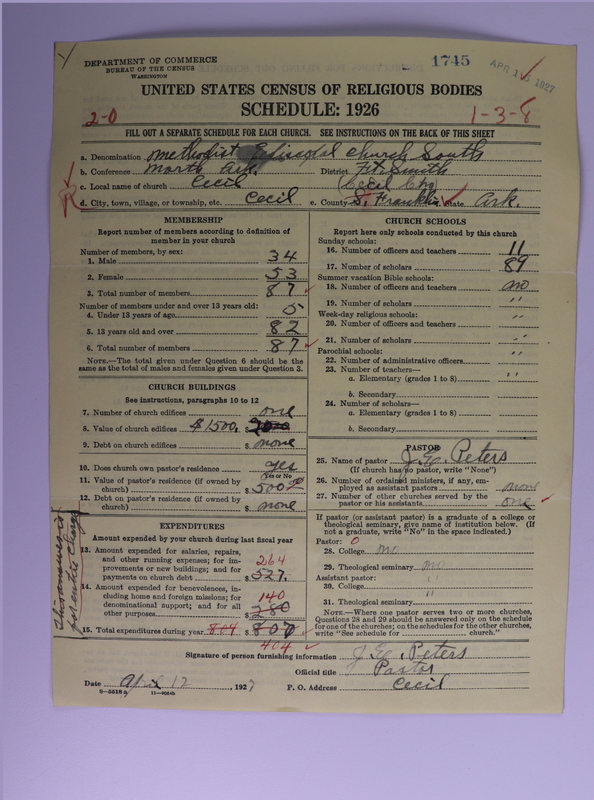 DEPARTMENT OF COMMERCE
BUREAU OF THE CENSUS
WASHINGTON
1745
APR 1 1927
UNITED STATES CENSUS OF RELIGIOUS BODIES
SCHEDULE: 1926
2-0
1-3-8
FILL OUT A SEPARATE SCHEDULE FOR EACH CHURCH. SEE INSTRUCTIONS ON THE BACK OF THIS SHEET
a. Denomination Methodist Episcopal Church South
b. Conference North Ark. District Ft. Smith
c. Local name of church Cecil (Cecil Chg
R d. City, town, village, or township, etc. Cecil e. County S. Franklin State Ark.
MEMBERSHIP
Report number of members according to definition of
member in your church
Number of members, by sex:
1. Male 34
2. Female 53
3. Total number of members 87
Number of members under and over 13 years old:
4. Under 13 years of age 5
5. 13 years old and over 82
6. Total number of members 87
NOTE.—The total given under Question 6 should be the
same as the total of males and females given under Question 3.
CHURCH BUILDINGS
See instructions, paragraphs 10 to 12
7. Number of church edifices one
8. Value of church edifices $1500. $
9. Debt on church edifices $ none
10. Does church own pastor's residence yes
Yes or No
11. Value of pastor's residence (if owned by
church) $ 500.00
12. Debt on pastor's residence (if owned by
church) $ none
EXPENDITURES
Amount expended by your church during last fiscal year
13. Amount expended for salaries, repairs,
and other running expenses; for im-
provements or new buildings; and for 264
payments on church debt $ 527.
14. Amount expended for benevolences, in-
cluding home and foreign missions; for 140
denominational support; and for all
other purposes $ 280
15. Total expenditures during year 804 $ 807
404
This answer is
for entire charge
CHURCH SCHOOLS
Report here only schools conducted by this church
Sunday schools:
16. Number of officers and teachers 11
17. Number of scholars 89
Summer vacation Bible schools:
18. Number of officers and teachers no
19. Number of scholars "
Week-day religious schools:
20. Number of officers and teachers "
21. Number of scholars "
Parochial schools:
22. Number of administrative officers "
23. Number of teachers—
a. Elementary (grades 1 to 8) "
b. Secondary
24. Number of scholars—
a. Elementary (grades 1 to 8)
b. Secondary
PASTOR
25. Name of pastor J. E. Peters
(If church has no pastor, write "None")
26. Number of ordained ministers, if any, em-
ployed as assistant pastors none
27. Number of other churches served by the
pastor or his assistants one
If pastor (or assistant pastor) is a graduate of a college or
theological seminary, give name of institution below. (If
not a graduate, write "No" in the space indicated.)
Pastor: 0
28. College no
29. Theological seminary no
Assistant pastor:
30. College "
31. Theological seminary "
NOTE.—Where one pastor serves two or more churches,
Questions 28 and 29 should be answered only on the schedule
for one of the churches; on the schedules for the other churches,
write "See schedule for church."
Signature of person furnishing information J. E. Peters
Official title Pastor
Date April 12, 1927 P. O. Address Cecil